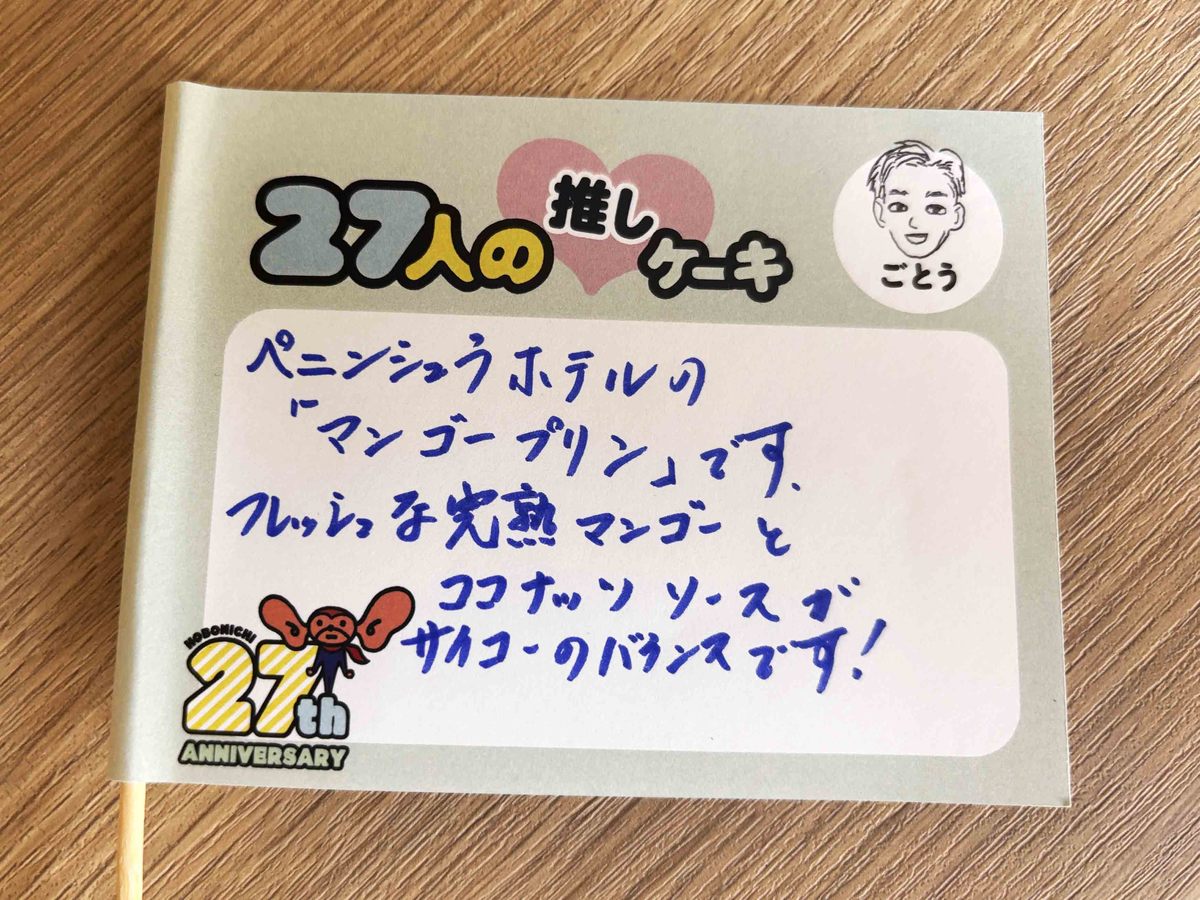 27人の推しケーキ
ごとう
ペニンシュラホテルの
「マンゴープリン」です。
フレッシュな完熟マンゴーと
ココナッツソースが
サイコーのバランスです!
HOBONICHI
27th
ANNIVERSARY